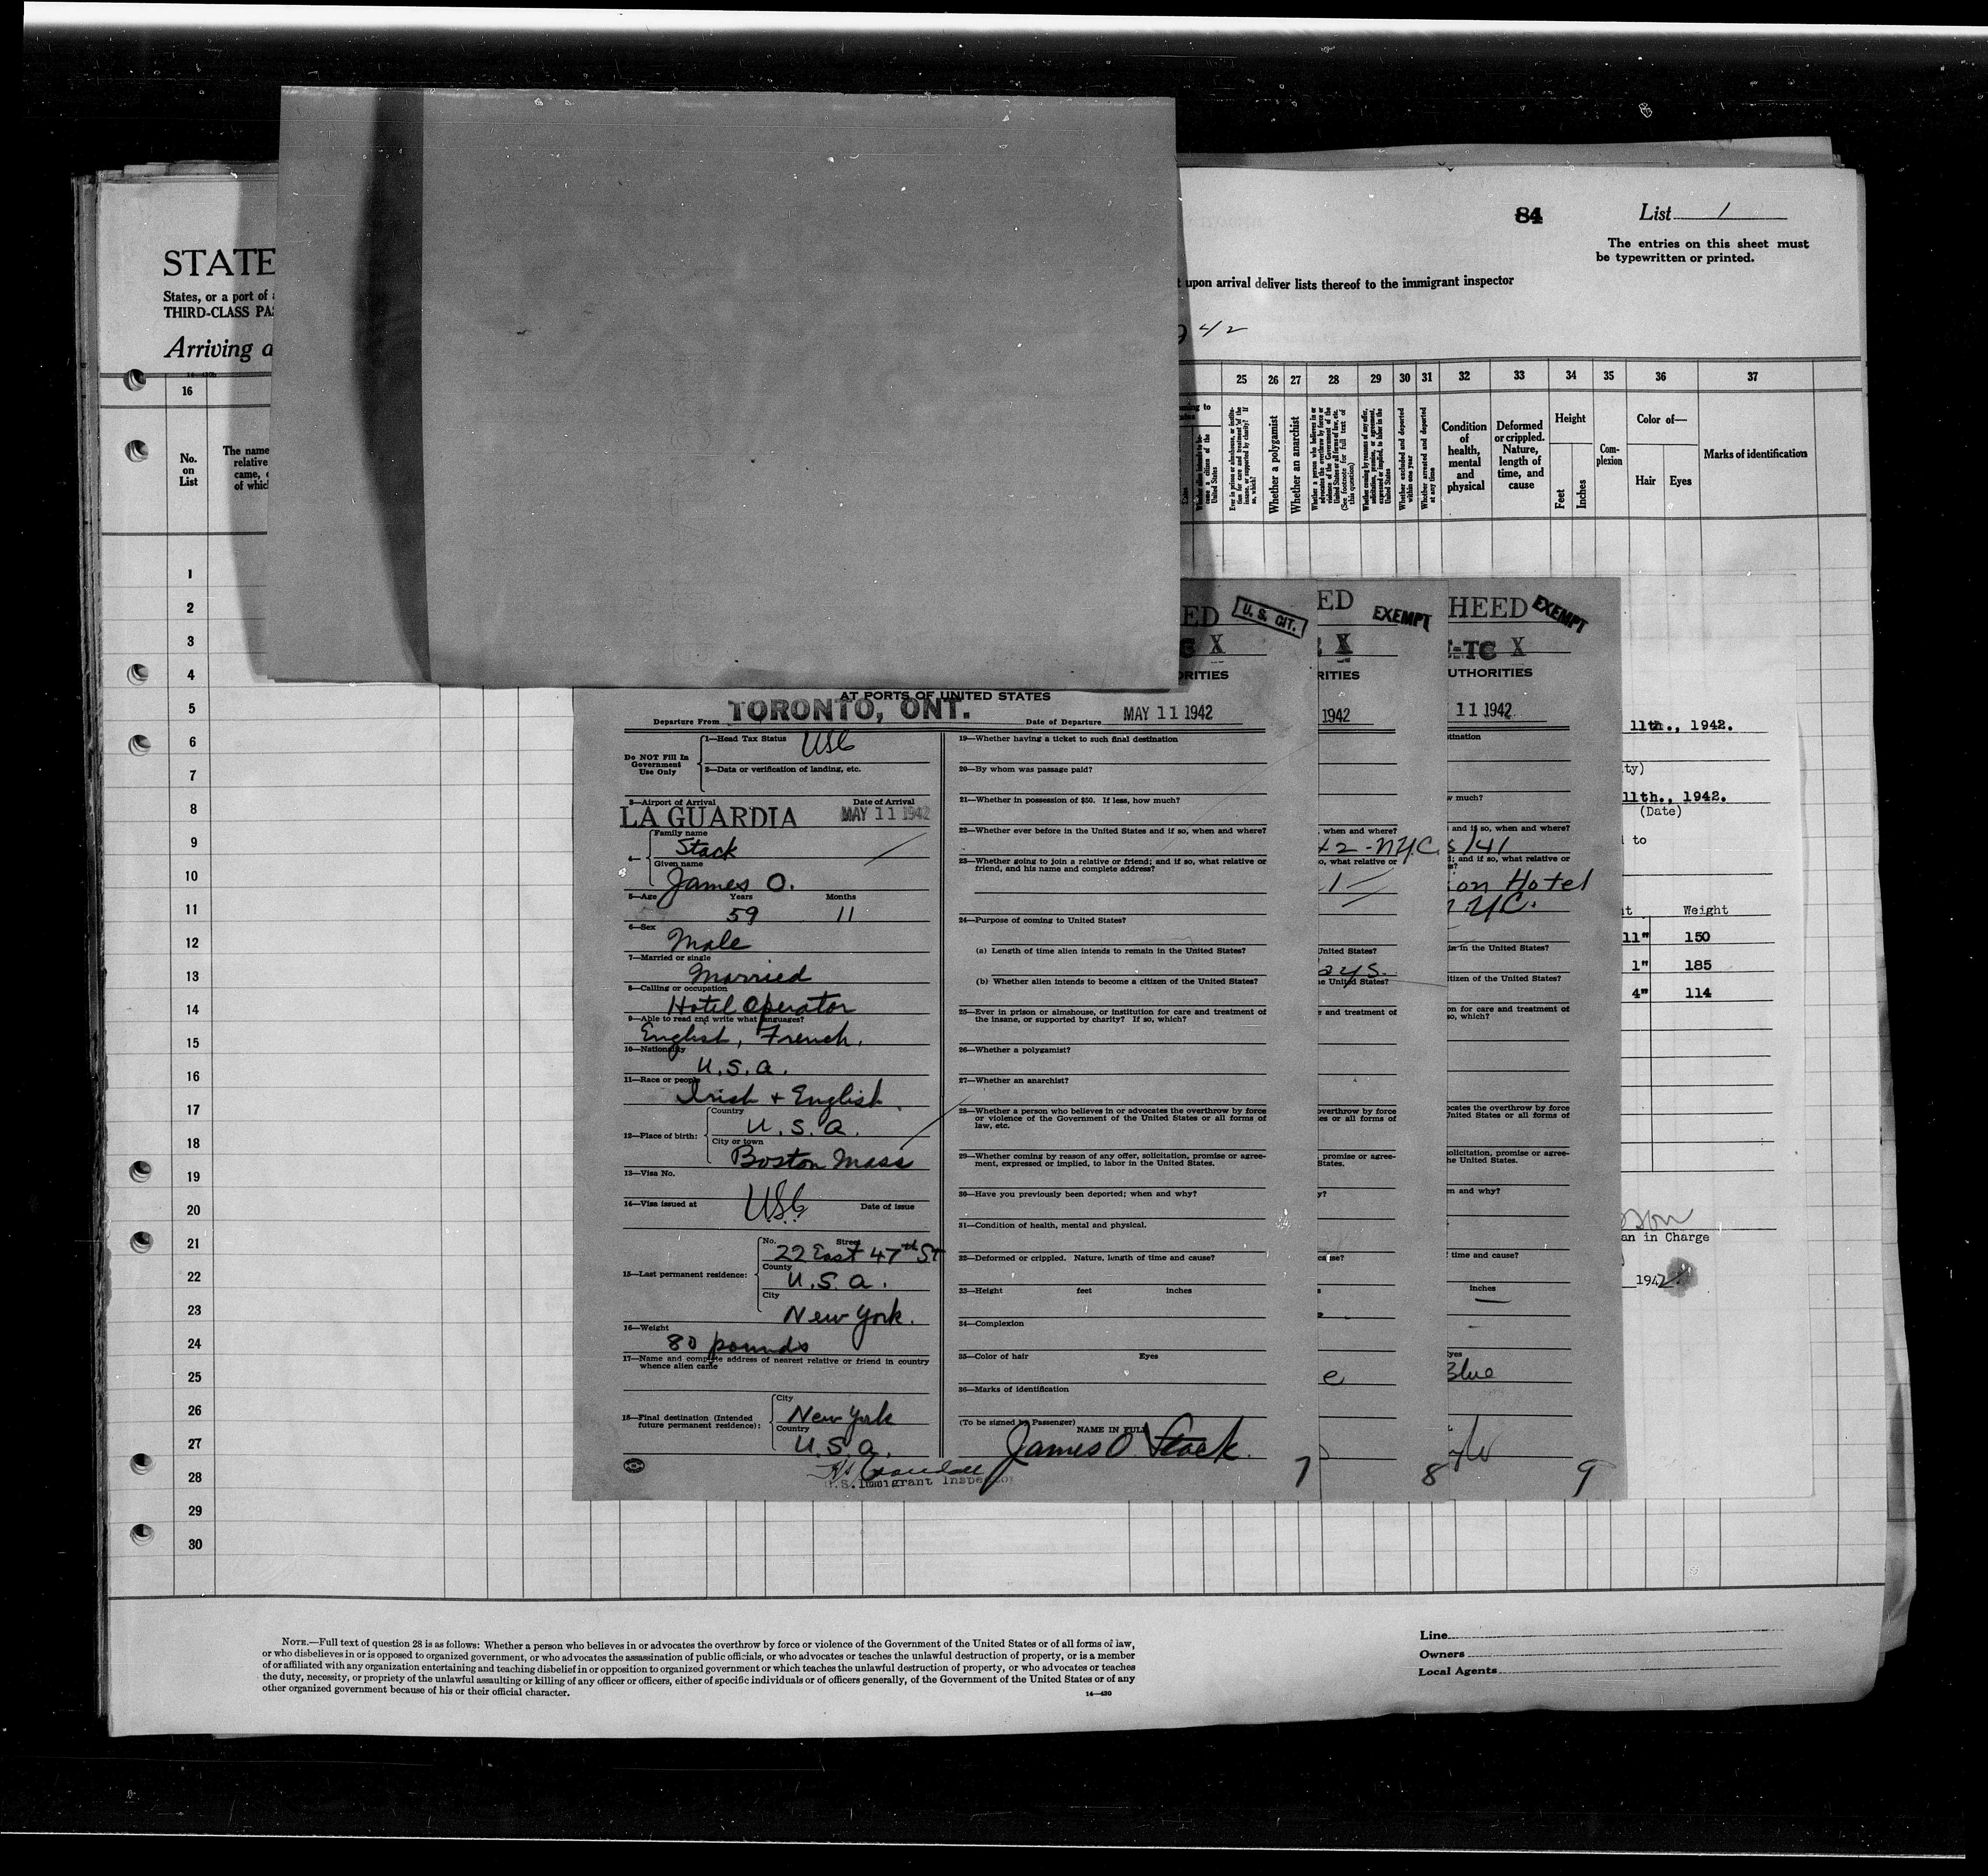 84
List 1
The entries on this sheet must
be typewritten or printed.
STATE
States, or a port of
THIRD-CLASS PA
upon arrival deliver lists thereof to the immigrant inspector
Arriving
42
16 25 26 27 28 29 30 31 32 33 34 35 36 37
No.
on
List
The name
relative
came,
of whic
Whether a polygamist
Whether an anarchist
Whether excluded and deported
within one year
Whether arrested and deported
at any time
Condition
of
health,
mental
and
physical
Deformed
or crippled.
Nature,
length of
time, and
cause
Height
Feet
Inches
Com-
plexion
Color of—
Hair
Eyes
Marks of identification
1
2
3
4
5
6
7
8
9
10
11
12
13
14
15
16
17
18
19
20
21
22
23
24
25
26
27
28
29
30
ED
U. S. CIT.
X
ORITIES
AT PORTS OF UNITED STATES
Departure From TORONTO, ONT.
Date of Departure MAY 11 1942
Do NOT Fill In
Government
Use Only
1—Head Tax Status USC
2—Data or verification of landing, etc.
3—Airport of Arrival
Date of Arrival
LA GUARDIA
MAY 11 1942
4—
Family name
Stack
Given name
James O.
5—Age
Years
Months
59 11
6—Sex
Male
7—Married or single
Married
8—Calling or occupation
Hotel Operator
9—Able to read and write what languages?
English, French.
10—Nationality
U.S.A.
11—Race or people
Irish + English
12—Place of birth:
Country
U.S.A.
City or town
Boston Mass
13—Visa No.
14—Visa issued at
USC
Date of Issue
15—Last permanent residence:
No.
Street
22 East 47th St
County
U.S.A.
City
New York.
16—Weight
80 pounds
17—Name and complete address of nearest relative or friend in country
whence alien came
18—Final destination (Intended
future permanent residence):
City
New York
Country
U.S.A.
U.S. Immigrant Inspector
19—Whether having a ticket to such final destination
20—By whom was passage paid?
21—Whether in possession of $50. If less, how much?
22—Whether ever before in the United States and if so, when and where?
23—Whether going to join a relative or friend; and if so, what relative or
friend, and his name and complete address?
24—Purpose of coming to United States?
(a) Length of time alien intends to remain in the United States?
(b) Whether alien intends to become a citizen of the United States?
25—Ever in prison or almshouse, or institution for care and treatment of
the insane, or supported by charity? If so, which?
26—Whether a polygamist?
27—Whether an anarchist?
28—Whether a person who believes in or advocates the overthrow by force
or violence of the Government of the United States or all forms of
law, etc.
29—Whether coming by reason of any offer, solicitation, promise or agree-
ment, expressed or implied, to labor in the United States.
30—Have you previously been deported; when and why?
31—Condition of health, mental and physical.
32—Deformed or crippled. Nature, length of time and cause?
33—Height feet inches
34—Complexion
35—Color of hair Eyes
36—Marks of identification
(To be signed by Passenger)
NAME IN FULL
James O. Stack.
7
ED
EXEMPT
X
RITIES
1942
when and where?
42 - NYC.
so, what relative or
United States?
ays.
e United States?
e and treatment of
overthrow by force
es or all forms of
promise or agree-
States.
y?
cause?
e
8
HEED
EXEMPT
-TC X
UTHORITIES
11 1942
tination
w much?
and if so, when and where?
/41
d; and if so, what relative or
ion Hotel
NYC.
in in the United States?
itizen of the United States?
on for care and treatment of
so, which?
ocates the overthrow by force
United States or all forms of
solicitation, promise or agree-
he United States.
en and why?
time and cause?
inches
Eyes
Blue
9
11th., 1942.
ty)
11th., 1942.
(Date)
to
t Weight
11" 150
1" 185
4" 114
son
an in Charge
1942
NOTE.—Full text of question 28 is as follows: Whether a person who believes in or advocates the overthrow by force or violence of the Government of the United States or of all forms of law,
or who disbelieves in or is opposed to organized government, or who advocates the assassination of public officials, or who advocates or teaches the unlawful destruction of property, or is a member
of or affiliated with any organization entertaining and teaching disbelief in or opposition to organized government or which teaches the unlawful destruction of property, or who advocates or teaches
the duty, necessity, or propriety of the unlawful assaulting or killing of any officer or officers, either of specific individuals or of officers generally, of the Government of the United States or of any
other organized government because of his or their official character.
14—430
Line
Owners
Local Agents